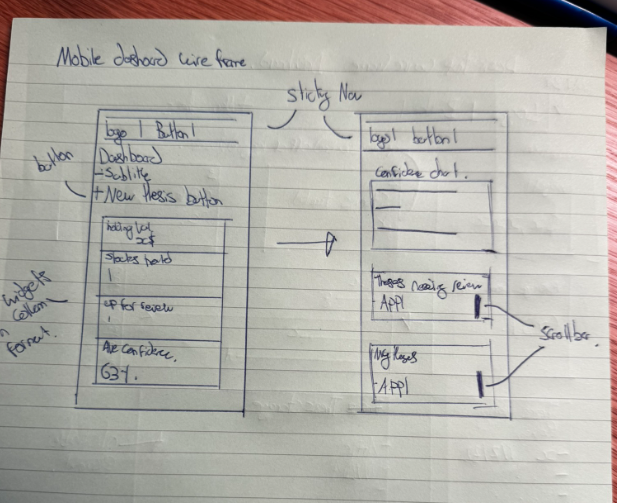 Mobile dashboard wire frame
sticky Nav
logo | Button |
Dashboard
- Subtitle
+ New thesis button
button
x$
Stocks held
1
up for review
1
Ave confidence.
63%.
widgets
in
column
format.
logo | button |
confidence chart.
Theses needing review
- APPl
My theses
- APPl
scrollbar.